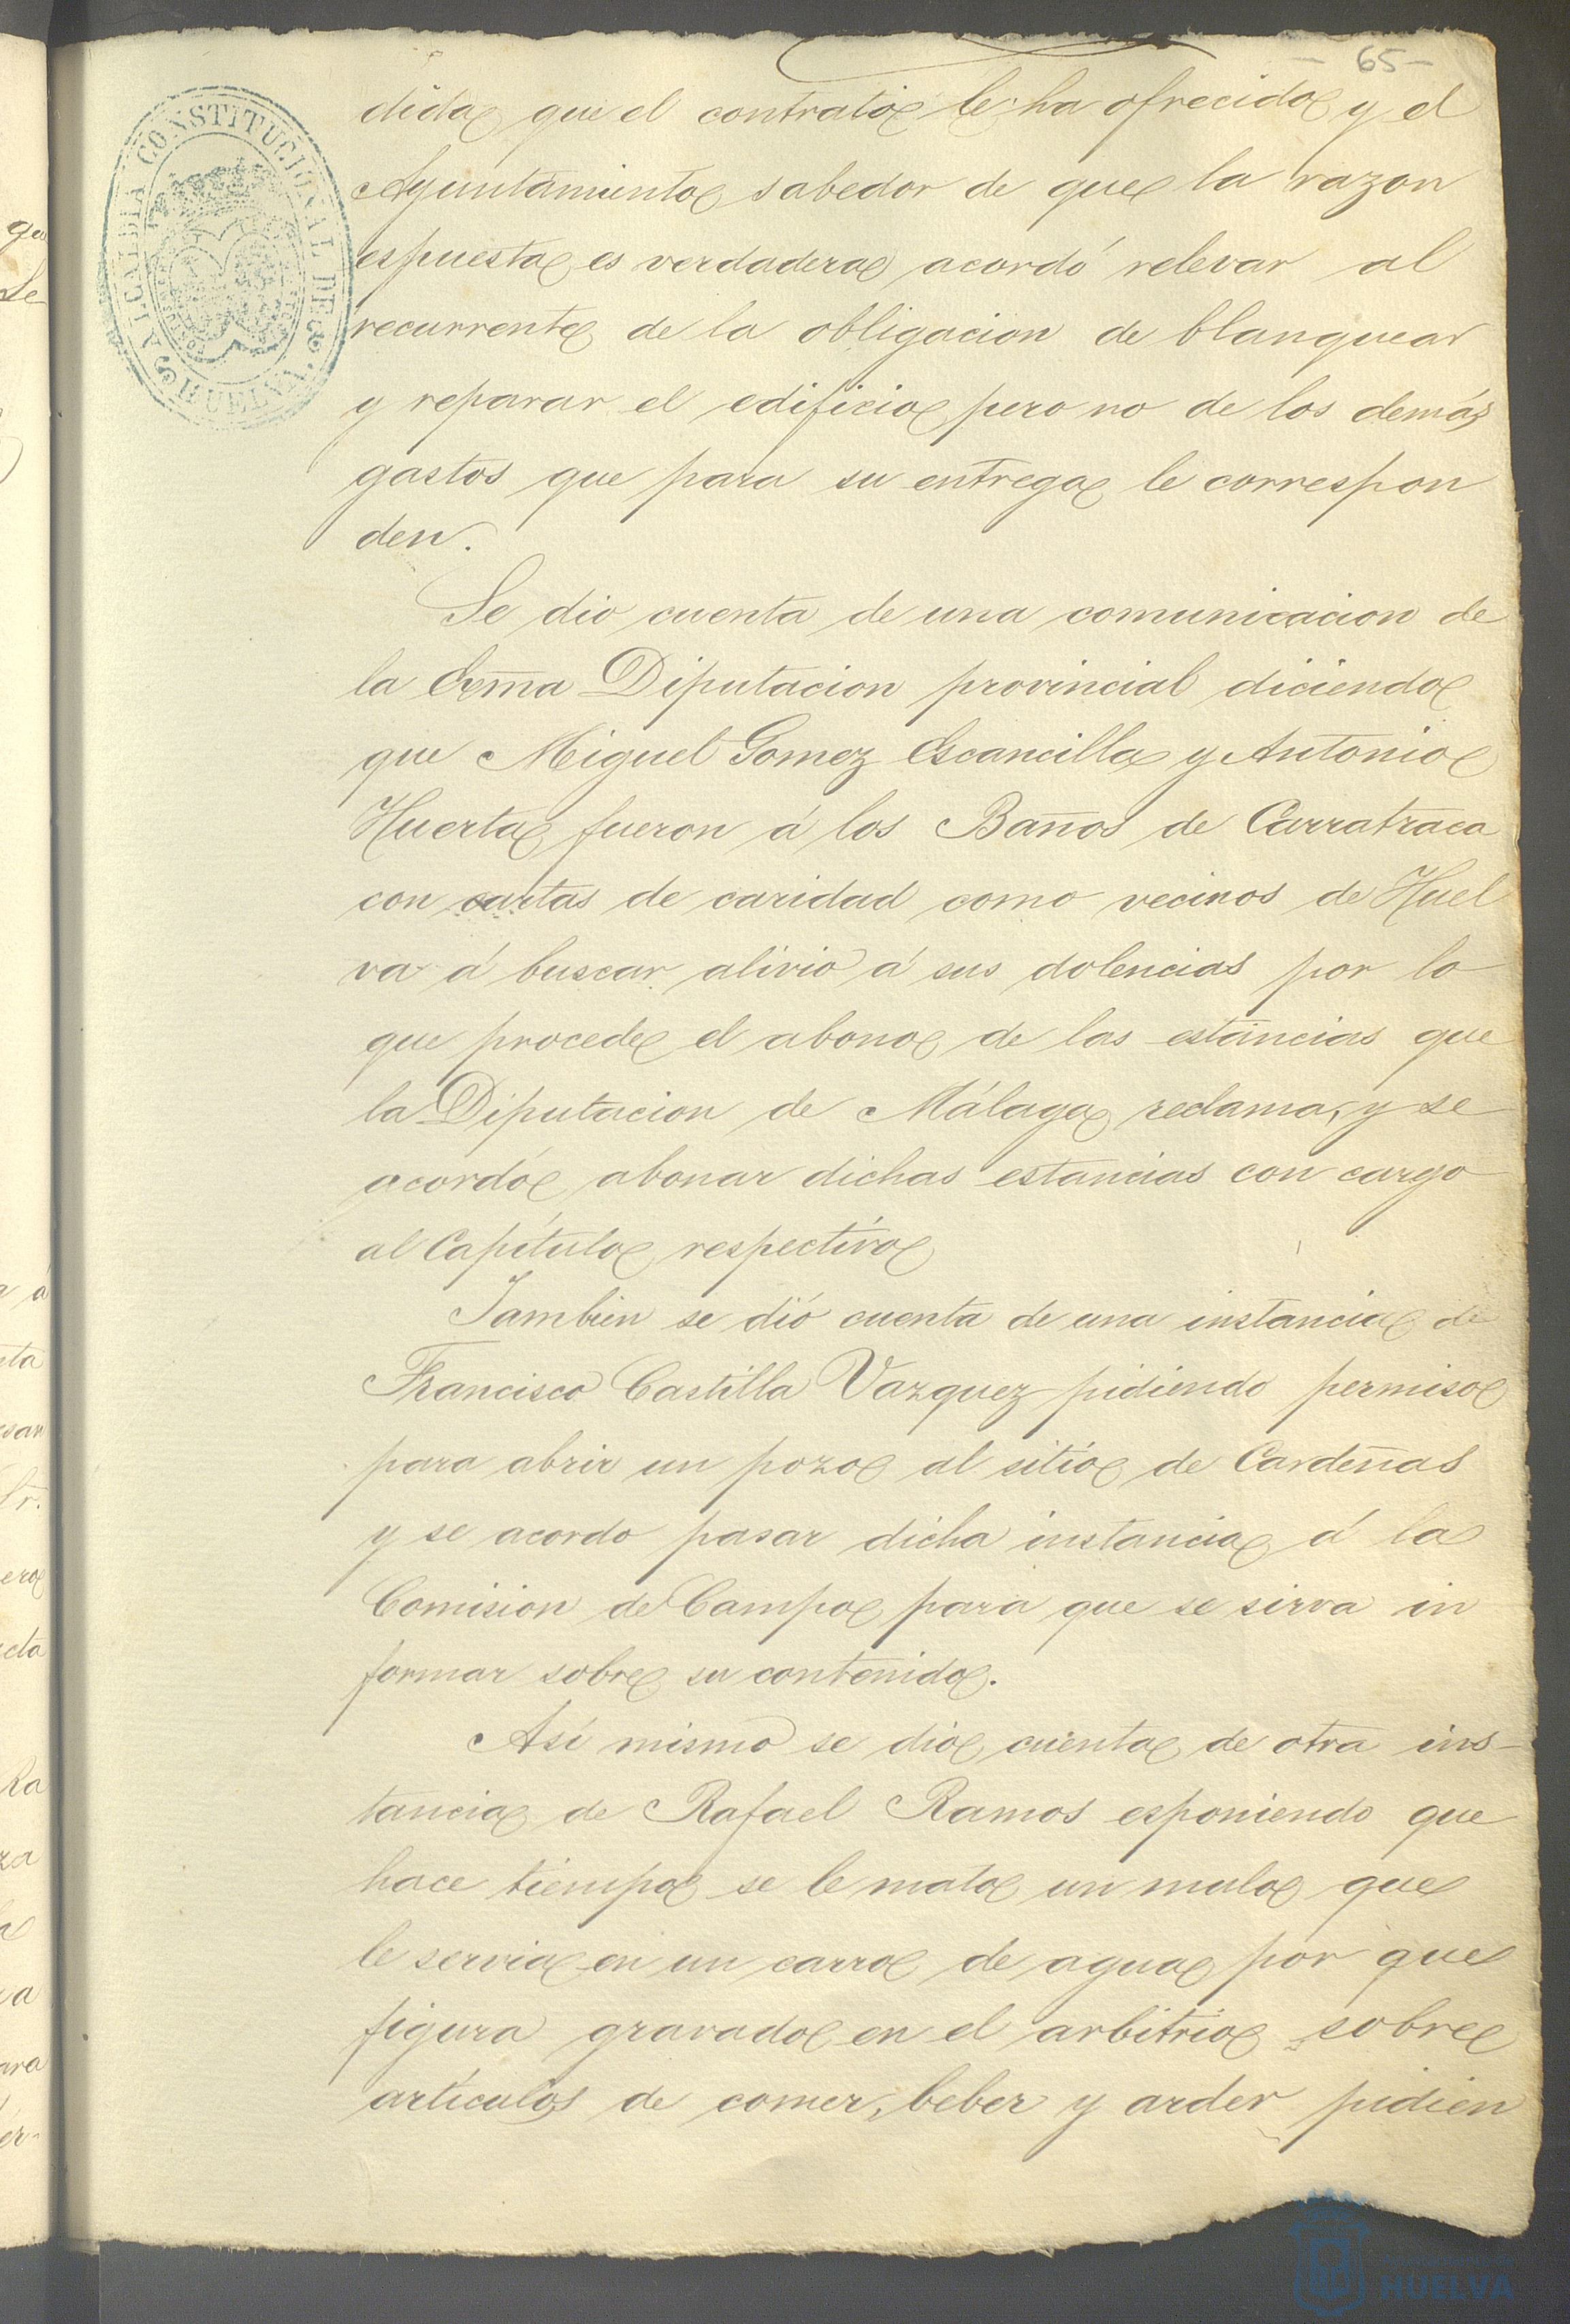 - 65 -
ALCALDIA CONSTITUCIONAL DE HUELVA
dida que el contrato le ha ofrecido y el
Ayuntamiento sabedor de que la razon
espuesta es verdadera acordó relevar al
recurrente de la obligacion de blanquear
y reparar el edificio pero no de los demás
gastos que para su entrega le correspon
den.
Se dio cuenta de una comunicacion de
la Exma Diputacion provincial diciendo
que Miguel Gomez Escancilla y Antonio
Huerta fueron á los Baños de Carratraca
con cartas de caridad como vecinos de Huel
va á buscar alivio á sus dolencias por lo
que procede el abono de las estancias que
la Diputacion de Málaga reclama, y se
acordó abonar dichas estancias con cargo
al Capítulo respectivo
Tambien se dió cuenta de una instancia de
Francisco Castilla Vazquez pidiendo permiso
para abrir un pozo al sitio de Cardeñas
y se acordo pasar dicha instancia á la
Comision de Campo para que se sirva in
formar sobre su contenido.
Así mismo se dio cuenta de otra ins-
tancia de Rafael Ramos esponiendo que
hace tiempo se le mato un mulo que
le servia en un carro de agua por que
figura gravado en el arbitrio sobre
artículos de comer, beber y arder pidien
HUELVA